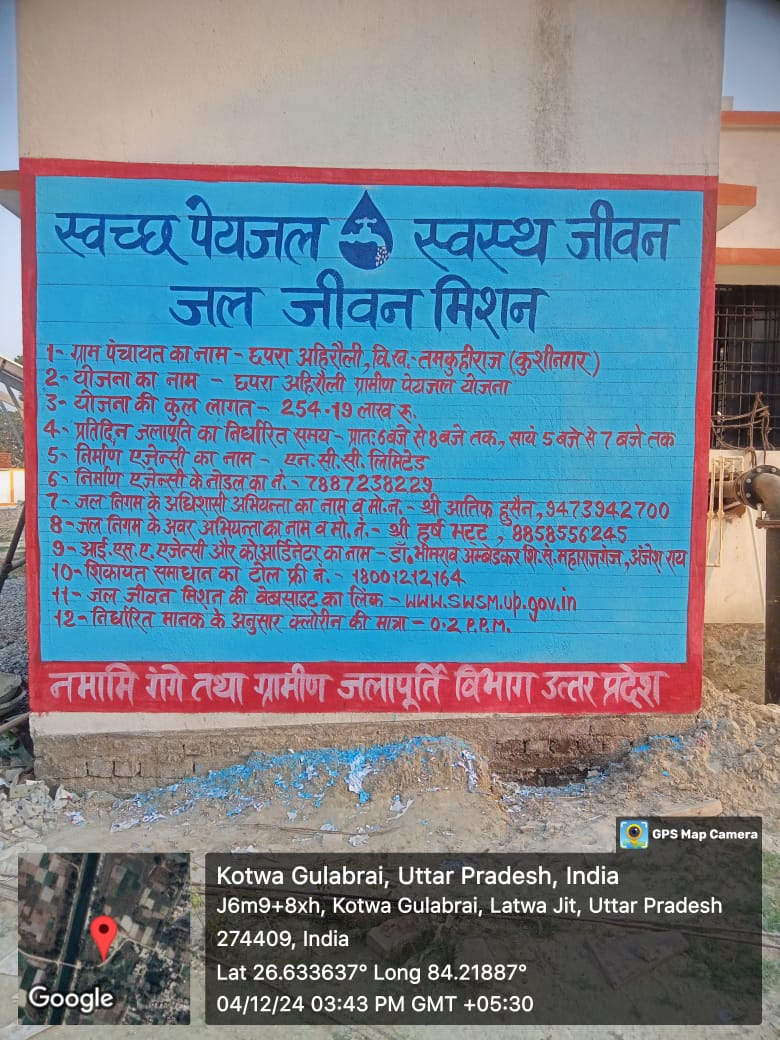 स्वच्छ पेयजल स्वस्थ जीवन
जल जीवन मिशन
1- ग्राम पंचायत का नाम - छपरा अहिरौली, वि.ख.-तमकुहीराज (कुशीनगर)
2- योजना का नाम - छपरा अहिरौली ग्रामीण पेयजल योजना
3- योजना की कुल लागत - 254.19 लाख रु.
4- प्रतिदिन जलापूर्ति का निर्धारित समय - प्रातः 6 बजे से 8 बजे तक, सायं 5 बजे से 7 बजे तक
5- निर्माण एजेन्सी का नाम - एन.सी.सी. लिमिटेड
6- निर्माण एजेन्सी के नोडल का नं.- 7887238229
7- जल निगम के अधिशासी अभियन्ता का नाम व मो.न.- श्री आतिफ हुसैन, 9473942700
8- जल निगम के अवर अभियन्ता का नाम व मो. नं.- श्री हर्ष भटट, 8858556245
9- आई.एस.ए. एजेन्सी और कोआर्डिनेटर का नाम - डॉ. भीमराव अम्बेडकर शि.सं. महाराजगंज, अंजेश राय
10- शिकायत समाधान का टोल फ्री नं. - 18001212164
11- जल जीवन मिशन की वेबसाइट का लिंक - www.swsm.up.gov.in
12- निर्धारित मानक के अनुसार क्लोरीन की मात्रा - 0.2 P.P.M.
नमामि गंगे तथा ग्रामीण जलापूर्ति विभाग उत्तर प्रदेश
GPS Map Camera
Kotwa Gulabrai, Uttar Pradesh, India
J6m9+8xh, Kotwa Gulabrai, Latwa Jit, Uttar Pradesh
274409, India
Lat 26.633637° Long 84.21887°
04/12/24 03:43 PM GMT +05:30
Google